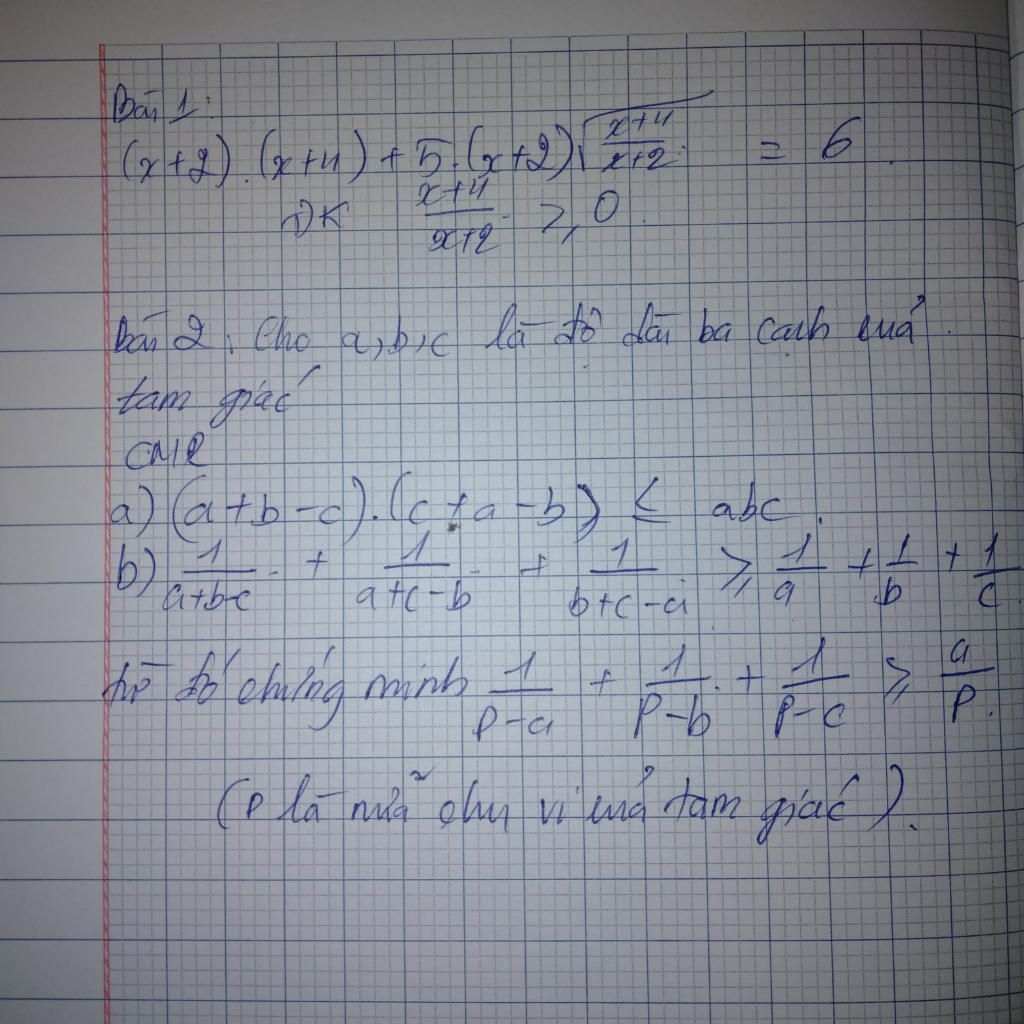 Bài 1:
(x+2).(x+4) + 5.(x+2)√((x+4)/(x+2)) = 6.
ĐK (x+4)/(x+2) ≥ 0.
Bài 2: Cho a,b,c là độ dài ba cạnh của
tam giác
CMR
a) (a+b-c).(c+a-b) ≤ abc.
b) 1/(a+b-c) + 1/(a+c-b) + 1/(b+c-a) ≥ 1/a + 1/b + 1/c
từ đó chứng minh 1/(P-a) + 1/(P-b) + 1/(P-c) ≥ a/P.
(P là nửa chu vi của tam giác).